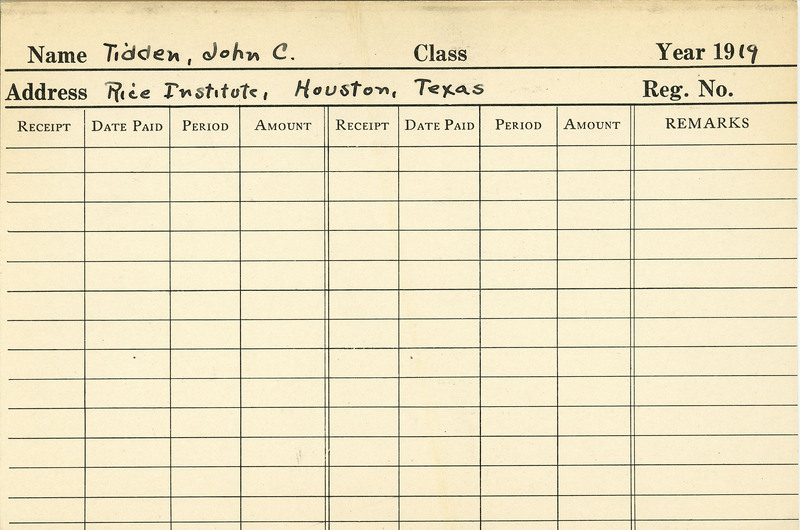 Name Tidden, John C. Class Year 1919
Address Rice Institute, Houston, Texas Reg. No.
RECEIPT DATE PAID PERIOD AMOUNT RECEIPT DATE PAID PERIOD AMOUNT REMARKS